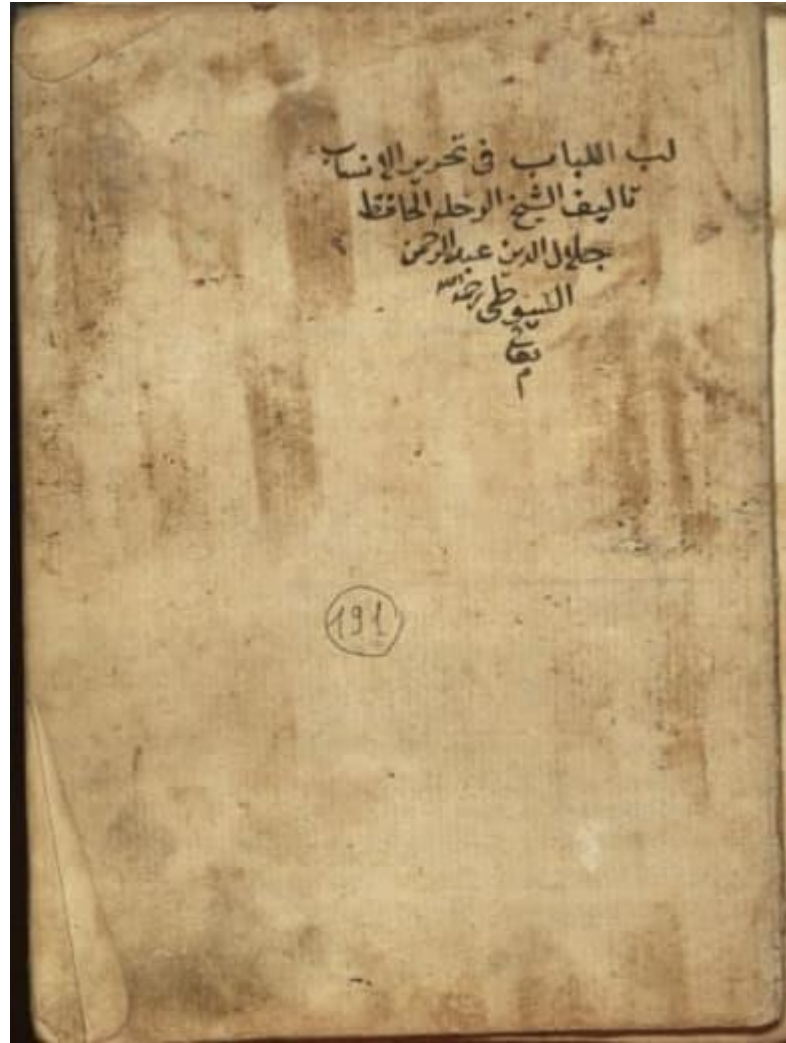 لب اللباب في تحرير الانساب
تاليف الشيخ الرحله الحافظ
جلال الدين عبد الرحمن
السيوطي رحمه الله
تعالى
م
191